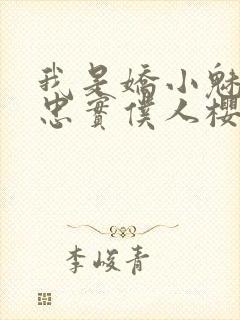 我是嬌小魅
忠實僕人櫻
李峻青